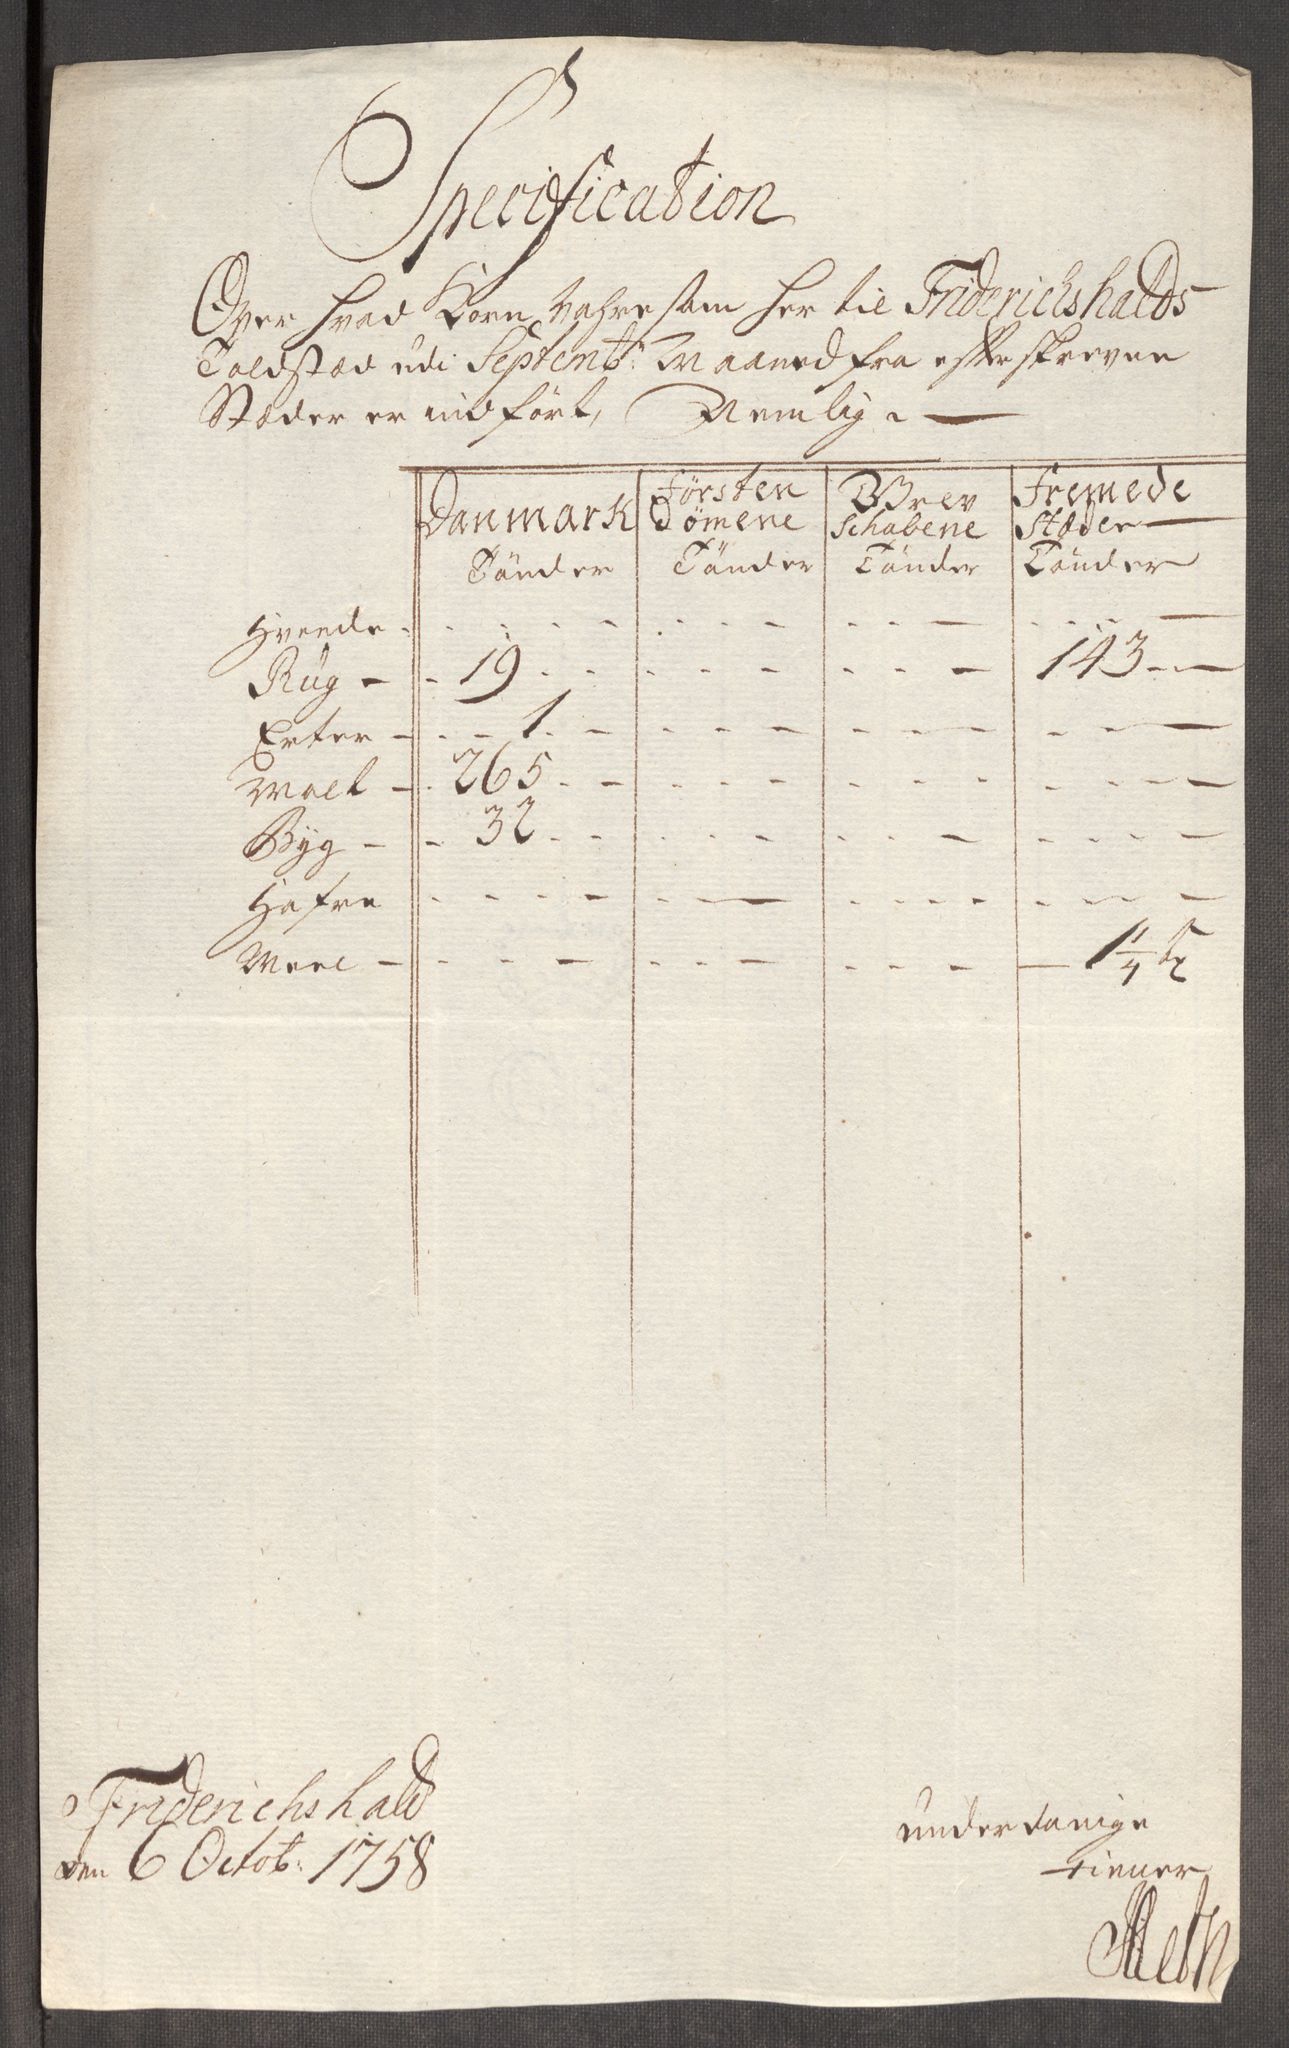 Specification
Over hvad Korn Vahre som her til Friderichshalds
Toldstæd udi Septembr: Maaned fra efterskrevne
Stæder er indført, Nemlig
Danmark Førsten Grev Fremede
Dømene Schabene Stæder
Tönder Tönder Tönder Tönder
Hveede
Rüg 19 143
Erter 1
Malt 265
Byg 32
Hafre
Meel 1 1/4
Friderichshald
den 6 Octob: 1758
underdanige
tiener